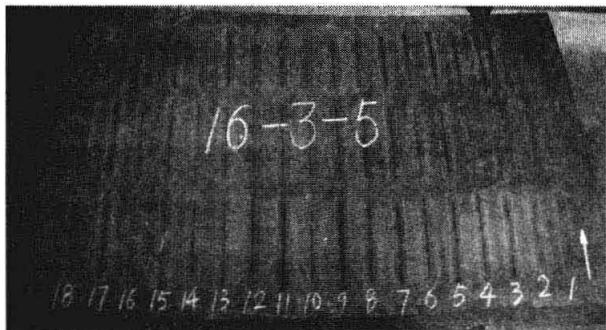 16-3-5
18 17 16 15 14 13 12 11 10 9 8 7 6 5 4 3 2 1